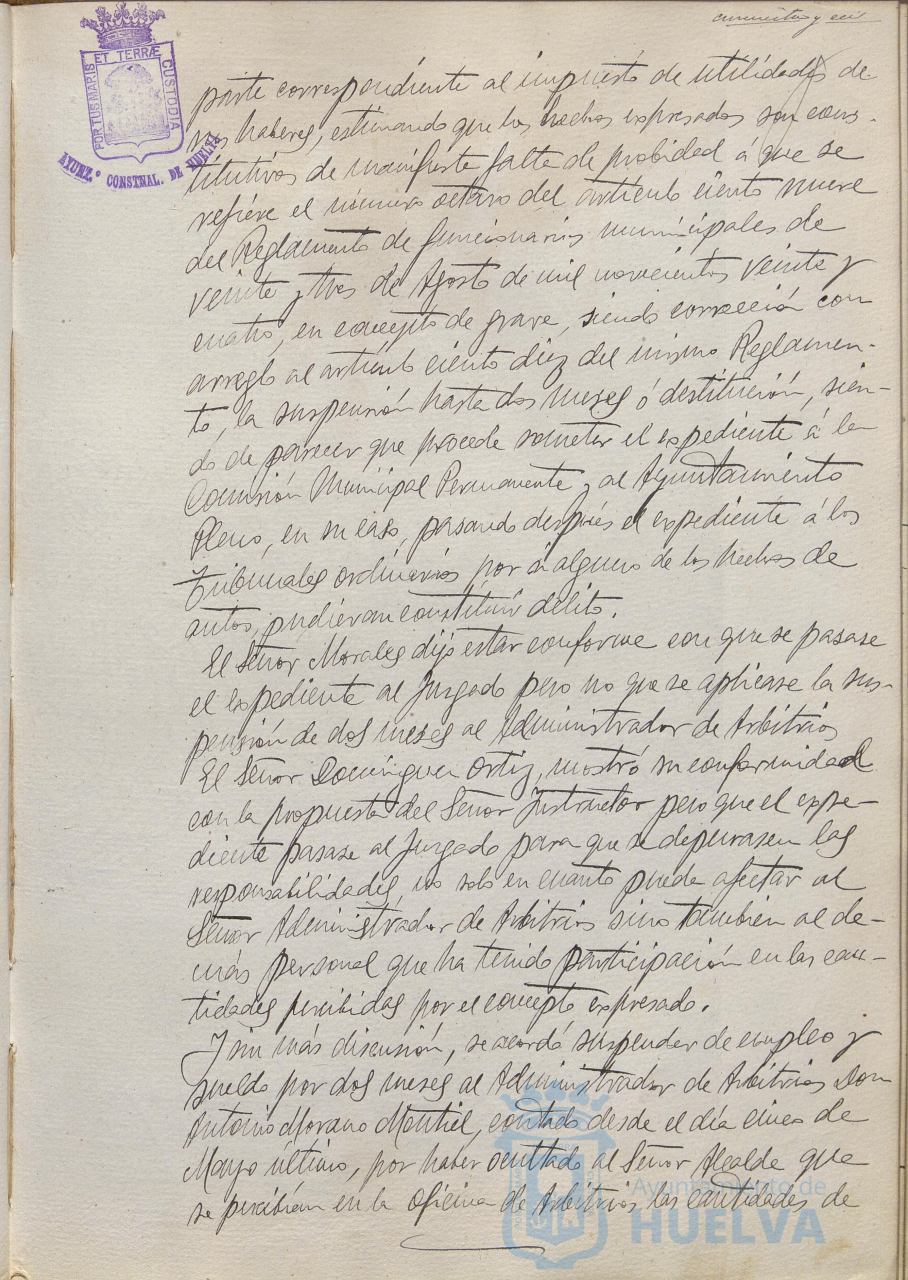 cuarenta y seis
PORTUS MARIS ET TERRÆ CUSTODIA
AYUNZ.º CONSTNAL. DE HUELVA
parte correspondiente al impuesto de utilidades de
sus haberes, estimando que los hechos expresados son cons-
titutivos de manifiesta falta de probidad á que se
refiere el número octavo del artículo ciento nueve
del Reglamento de funcionarios municipales de
veinte y tres de Agosto de mil novecientos veinte y
cuatro, en concepto de grave, siendo corrección con
arreglo al artículo ciento diez del mismo Reglamen-
to, la suspensión hasta dos meses ó destitución, sien-
do de parecer que procede someter el expediente á la
Comisión Municipal Permanente y al Ayuntamiento
Pleno, en su caso, pasando después el expediente á los
Tribunales ordinarios por si alguno de los hechos de
autos, pudieran constituir delito.
El Señor Morales dijo estar conforme con que se pasase
el expediente al Juzgado pero no que se aplicase la sus-
pensión de dos meses al Administrador de Arbitrios
El Señor Domínguez Ortiz, mostró su conformidad
con la propuesta del Señor Instructor pero que el expe-
diente pasase al Juzgado para que se depurasen las
responsabilidades no solo en cuanto puede afectar al
Señor Administrador de Arbitrios sino también al de-
más personal que ha tenido participación en las can-
tidades percibidas por el concepto expresado.
Y sin más discusión, se acordó suspender de empleo y
sueldo por dos meses al Administrador de Arbitrios Don
Antonio Morano Montiel, contado desde el día cinco de
Mayo último, por haber ocultado al Señor Alcalde que
se percibían en la oficina de Arbitrios las cantidades de
Ayuntamiento de
HUELVA